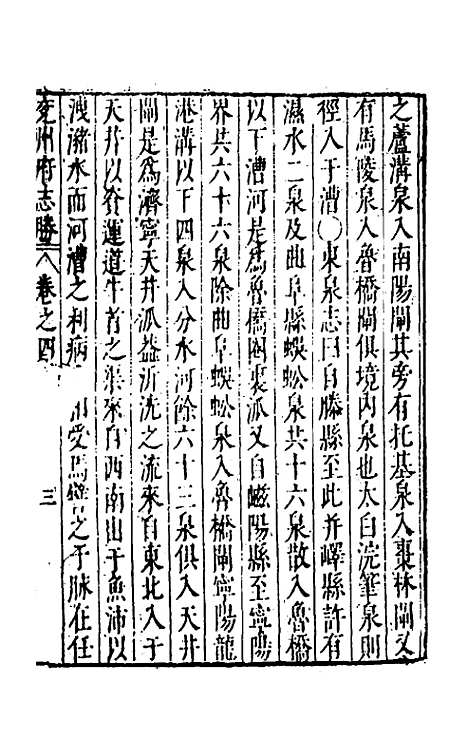 之蘆溝泉入南陽閘其旁有托基泉入棗林閘又
有馬陵泉入魯橋閘俱境內泉也太白浣筆泉則
徑入于漕〇東泉志曰自滕縣至此并嶧縣許有
濕水二泉及曲阜縣蜈蚣泉共十六泉散入魯橋
以下漕河是為魯橋閘裏泒又自磁陽縣至寧陽
界共六十六泉除曲阜蜈蚣泉入魯橋閘寧陽龍
港溝以下四泉入分水河餘六十三泉俱入天井
閘是為濟寧天井泒益沂洸之流來自東北入于
天井以資運道牛首之渠來自西南出于魚沛以
洩潴水而河漕之利病受馬之于脉在任
兖州府志勝 卷之四 三